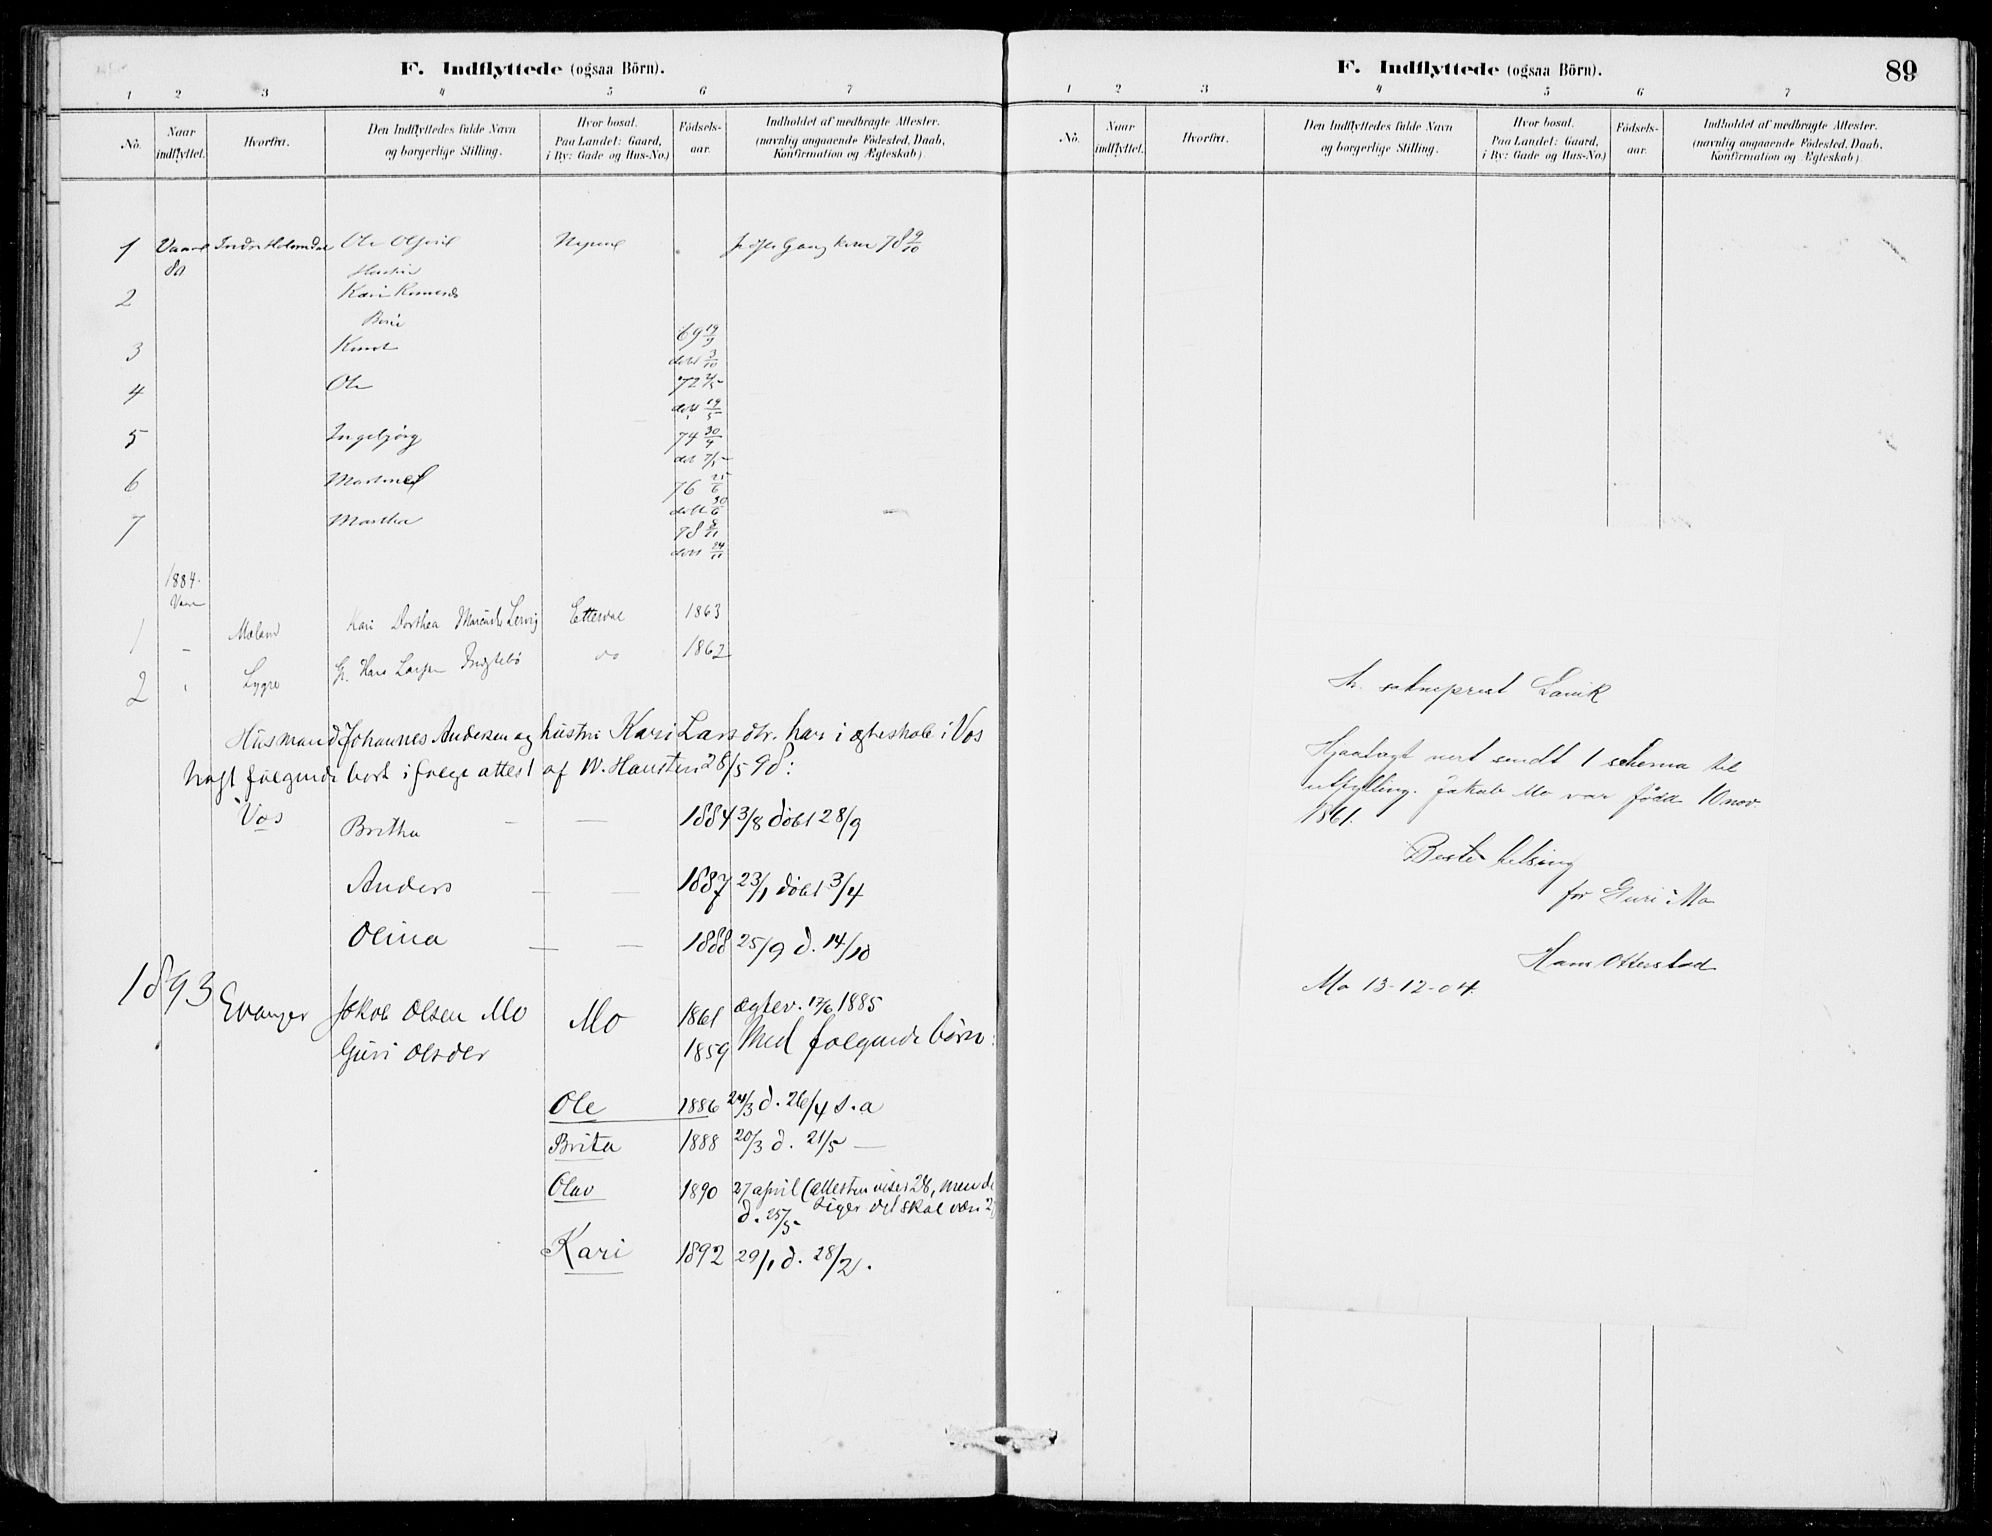 F. Indflyttede (ogsaa Börn).
1 2 3 4 5 6 7
No. Naar indflyttet. Hvorfra. Den Indflyttedes fulde Navn og borgerlige Stilling. Hvor bosat. Paa Landet: Gaard, i By: Gade og Hus-No.) Födsels-aar. Indholdet af medbragte Attester. (navnlig angaaende Födested, Daab, Konfirmation og Ægteskab)
1 Vaaren Indre Holmedal Ole
80
2 Kari
3 Knud 69 19/9
döbt 3/10
4 Ole 72
döbt 19/5
5 Ingebjörg 74 30/4
6 76 25/6
döbt 30/6
7 Martha 78 8/11
döbt 24/11
1884.
1 Mæland Kari Dorthea 1863
2 Lygre Hans Larsen do 1862
Husmand Johannes Andersen og hustru Kari Larsdtr. har i ægteskab i Vos
havt følgende børn ifølge attest af W. Hansteen 28/5 98:
Vos Britha — — 1884 3/8 døbt 28/9
Anders — — 1887 23/1 døbt 3/4
Olina — — 1888 25/9 d. 14/10
1893 Evanger Jakob Olsen Mo Mo 1861 ægtev. 17/6 1885
Guri Olsdtr 1859 Med følgende børn:
Ole 1886 24/3 d. 26/4 s.a
Brita 1888 20/3 d. 21/5 —
Olav 1890 27 april (attesten viser 28, men de
d. 25/5 siger det skal være 2
Kari 1892 29/1 d. 28/2.
F. Indflyttede (ogsaa Börn).
89
1 2 3 4 5 6 7
No. Naar indflyttet. Hvorfra. Den Indflyttedes fulde Navn og borgerlige Stilling. Hvor bosat. Paa Landet: Gaard, i By: Gade og Hus-No.) Födsels-aar. Indholdet af medbragte Attester. (navnlig angaaende Födested, Daab, Konfirmation og Ægteskab)
Hr. sokneprest Lavik
Hjaalagt vert sendt 1 schema til
utfylling. Jakob Mo var född 10 nov
1861.
Beste helsing
for Guri Mo
Hans Otterstad
Mo 13-12-04.